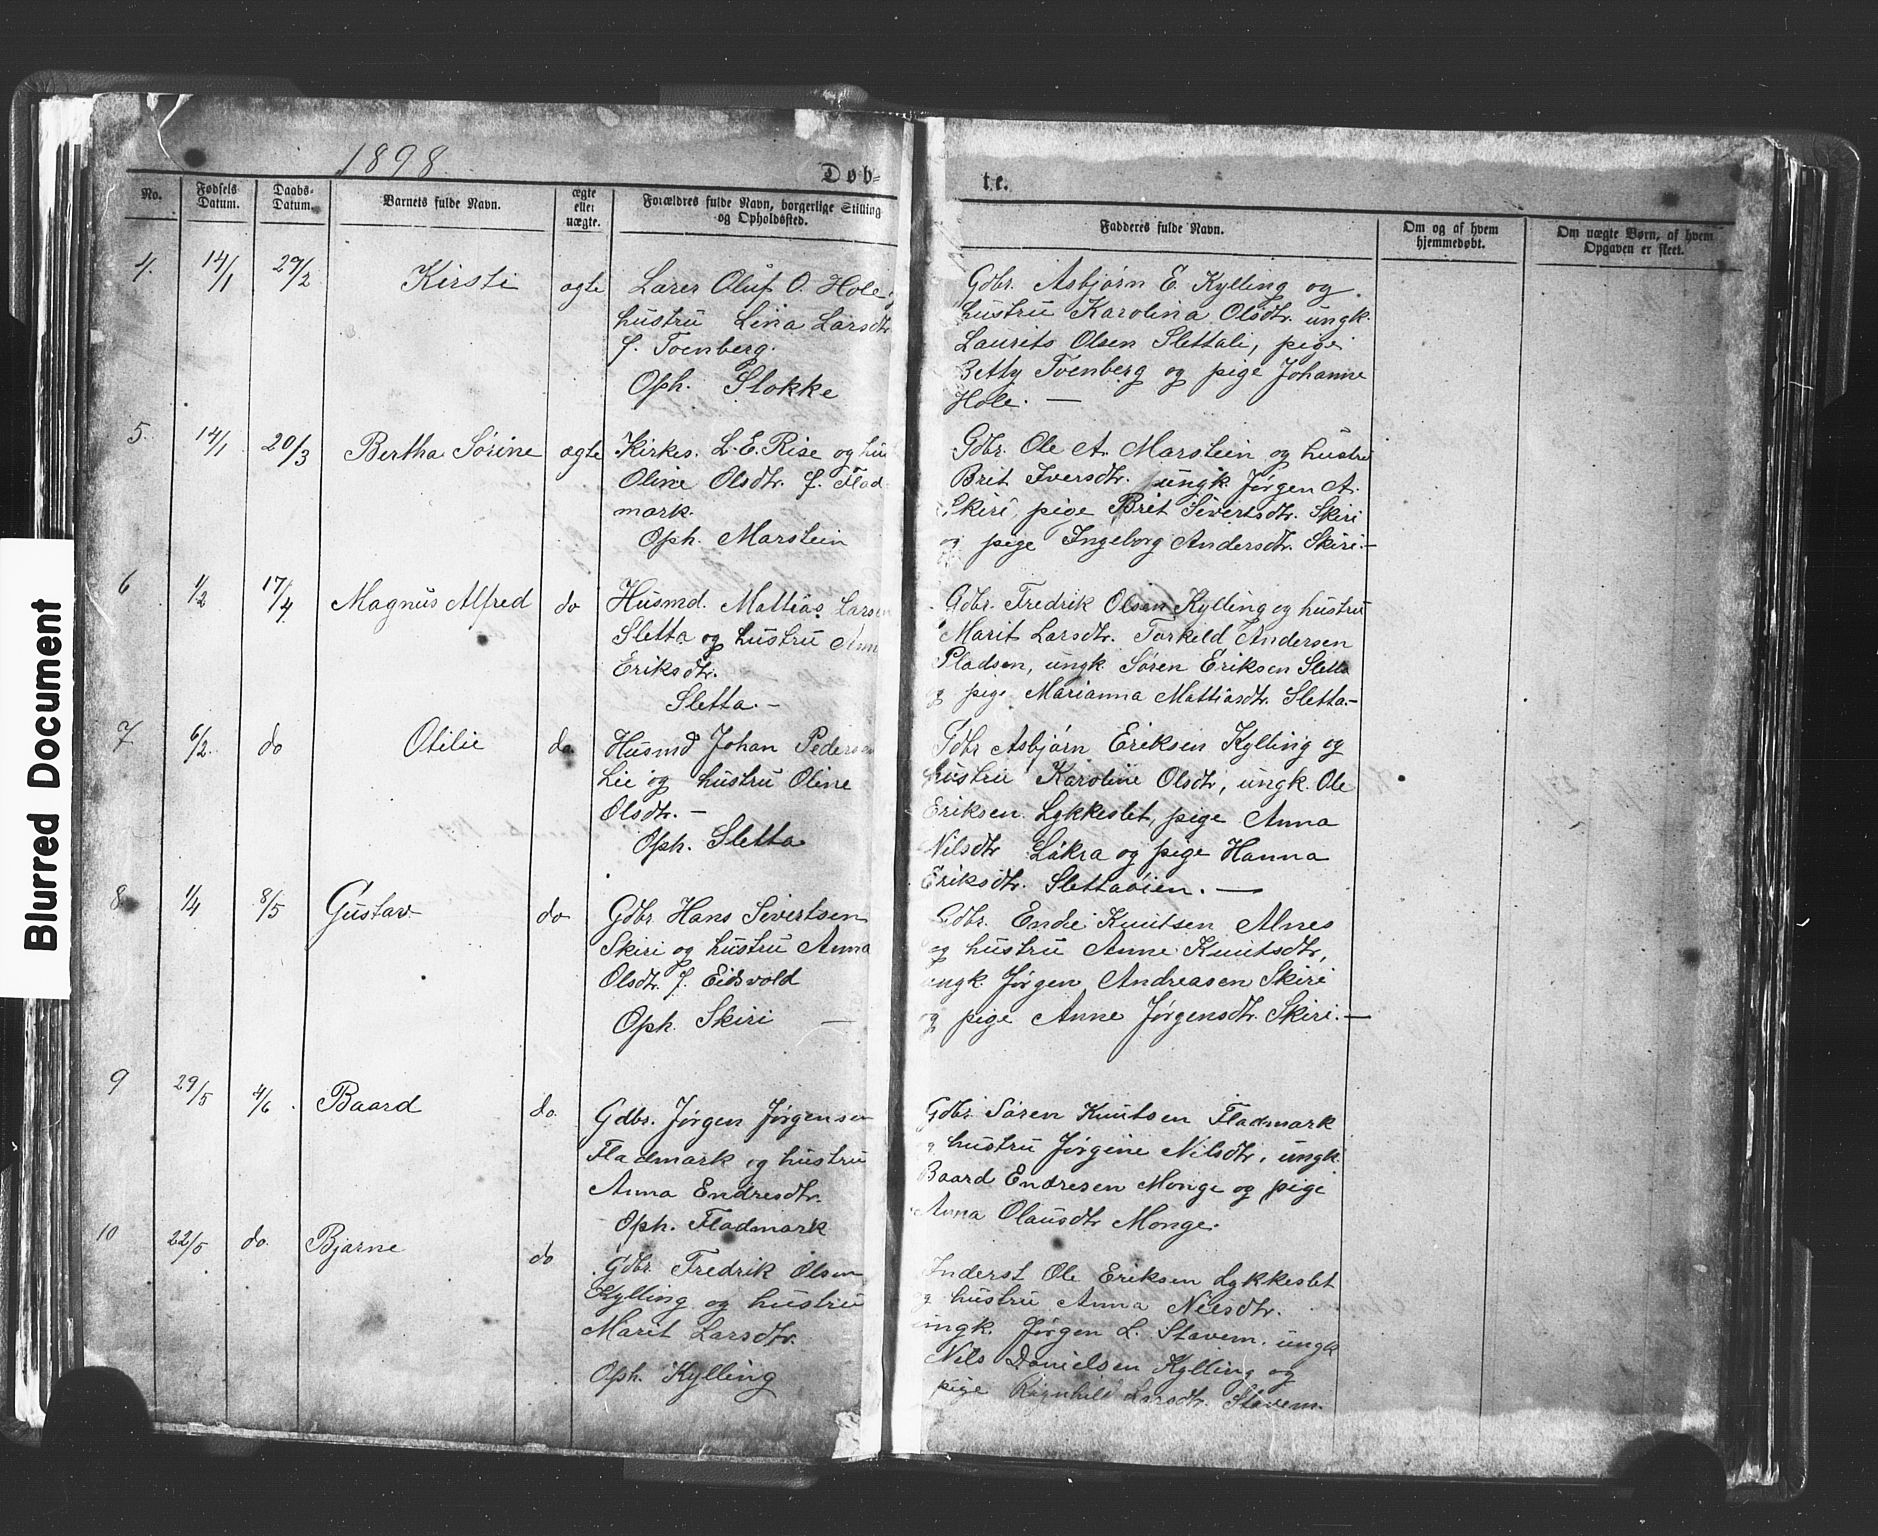 Blurred Document
1898.
Døb-
te.
No.
Fødsels Datum.
Daabs-Datum.
Barnets fulde Navn.
ægte eller uægte.
Forældres fulde Navn, borgerlige Stilling og Opholdssted.
Fadderes fulde Navn.
Om og af hvem hjemmedøbt.
Om uægte Børn, af hvem Opgaven er skeet.
4. 14/1 27/2 Kirsti ægte
Lærer Oluf O. Hole
hustru Lina Larsdtr
f. Tvenberg.
Oph. Stokke
Gdbr. Asbjørn E. Kylling og
hustru Karolina Olsdtr. ungk.
Laurits Olsen Slettali, pige
Betty Tvenberg og pige Johanne
Hole. —
5. 14/1 20/3 Bertha Sørine ægte
Kirkes. L. E. Rise og hus
Oline Olsdtr. f. Flad-
mark.
Oph. Marstein
Gdbr. Ole A. Marstein og hustru
Brit Iversdtr. ungk Jørgen A.
Skiri, pige Brit Sivertsdtr. Skiri
og pige Ingeborg Andersdtr. Skiri.—
6 1/2 17/4 Magnus Alfred do
Husmd. Mattias Larsen
Sletta og hustru Ann
Eriksdtr.
Sletta.—
Gdbr. Fredrik Olsen Kylling og hustru
Marit Larsdtr. Torkild Andersen
Pladsen, ungk. Søren Eriksen Sletta
og pige Marianna Mattiasdtr. Sletta.—
7. 6/2. do Otilie do.
Husmd Johan Pedersen
Lie og hustru Oline
Olsdtr. —
Oph. Sletta
Gdbr Asbjørn Eriksen Kylling og
hustru Karoline Olsdtr, ungk. Ole
Eriksen Lykkeslet, pige Anna
Nilsdtr Løkra og pige Hanna
Eriksdtr. Slettaøien. —
8. 1/4 8/5 Gustav do
Gdbr. Hans Sivertsen
Skiri og hustru Anna
Olsdtr. f. Eidsvold
Oph. Skiri —
Gdbr. Endre Knutsen Alnes
og hustru Anne Knutsdtr,
ungk. Jørgen Andreasen Skiri
og pige Anne Jørgensdtr. Skiri.—
9 29/5 4/6 Baard do.
Gdbr. Jørgen Jørgensen
Fladmark og hustru
Anna Endresdtr.
Oph. Fladmark
Gdbr. Søren Knutsen Fladmark
og hustru Jørgine Nilsdtr, ungk.
Baard Endresen Monge og pige
Anna Olausdtr Monge.
10 22/5 do. Bjarne do
Gdbr Fredrik Olsen
Kylling og hustru
Marit Larsdtr.
Oph. Kylling
Inderst Ole Eriksen Lykkeslet
og hustru Anna Nilsdtr.
ungk. Jørgen L. Stavem. ungk
Nils Danielsen Kylling og
pige Ragnhild Larsdtr. Stavem.